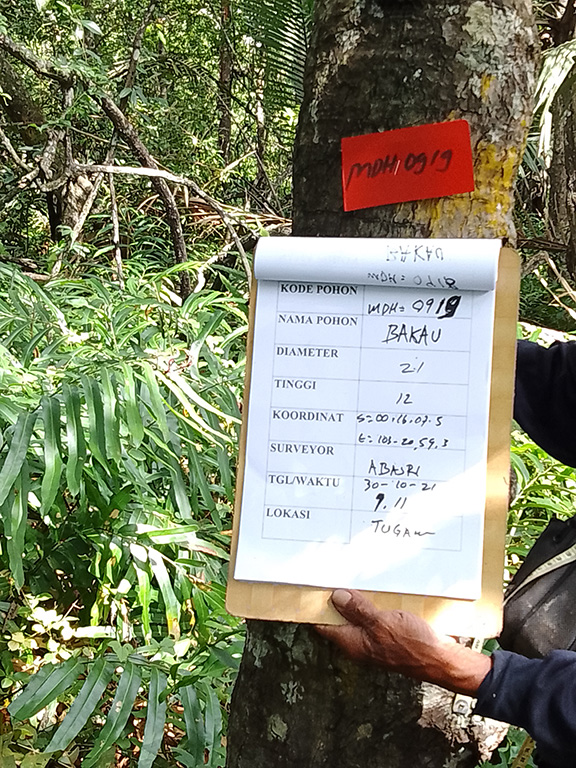 MDH, 0919
BAKAU
MDH = 0918
KODE POHON MDH = 0919
NAMA POHON BAKAU
DIAMETER 21
TINGGI 12
KOORDINAT S=00.16.07.5
E=103-20,59,3
SURVEYOR ABASRI
TGL/WAKTU 30-10-21
9.11
LOKASI TUGAU